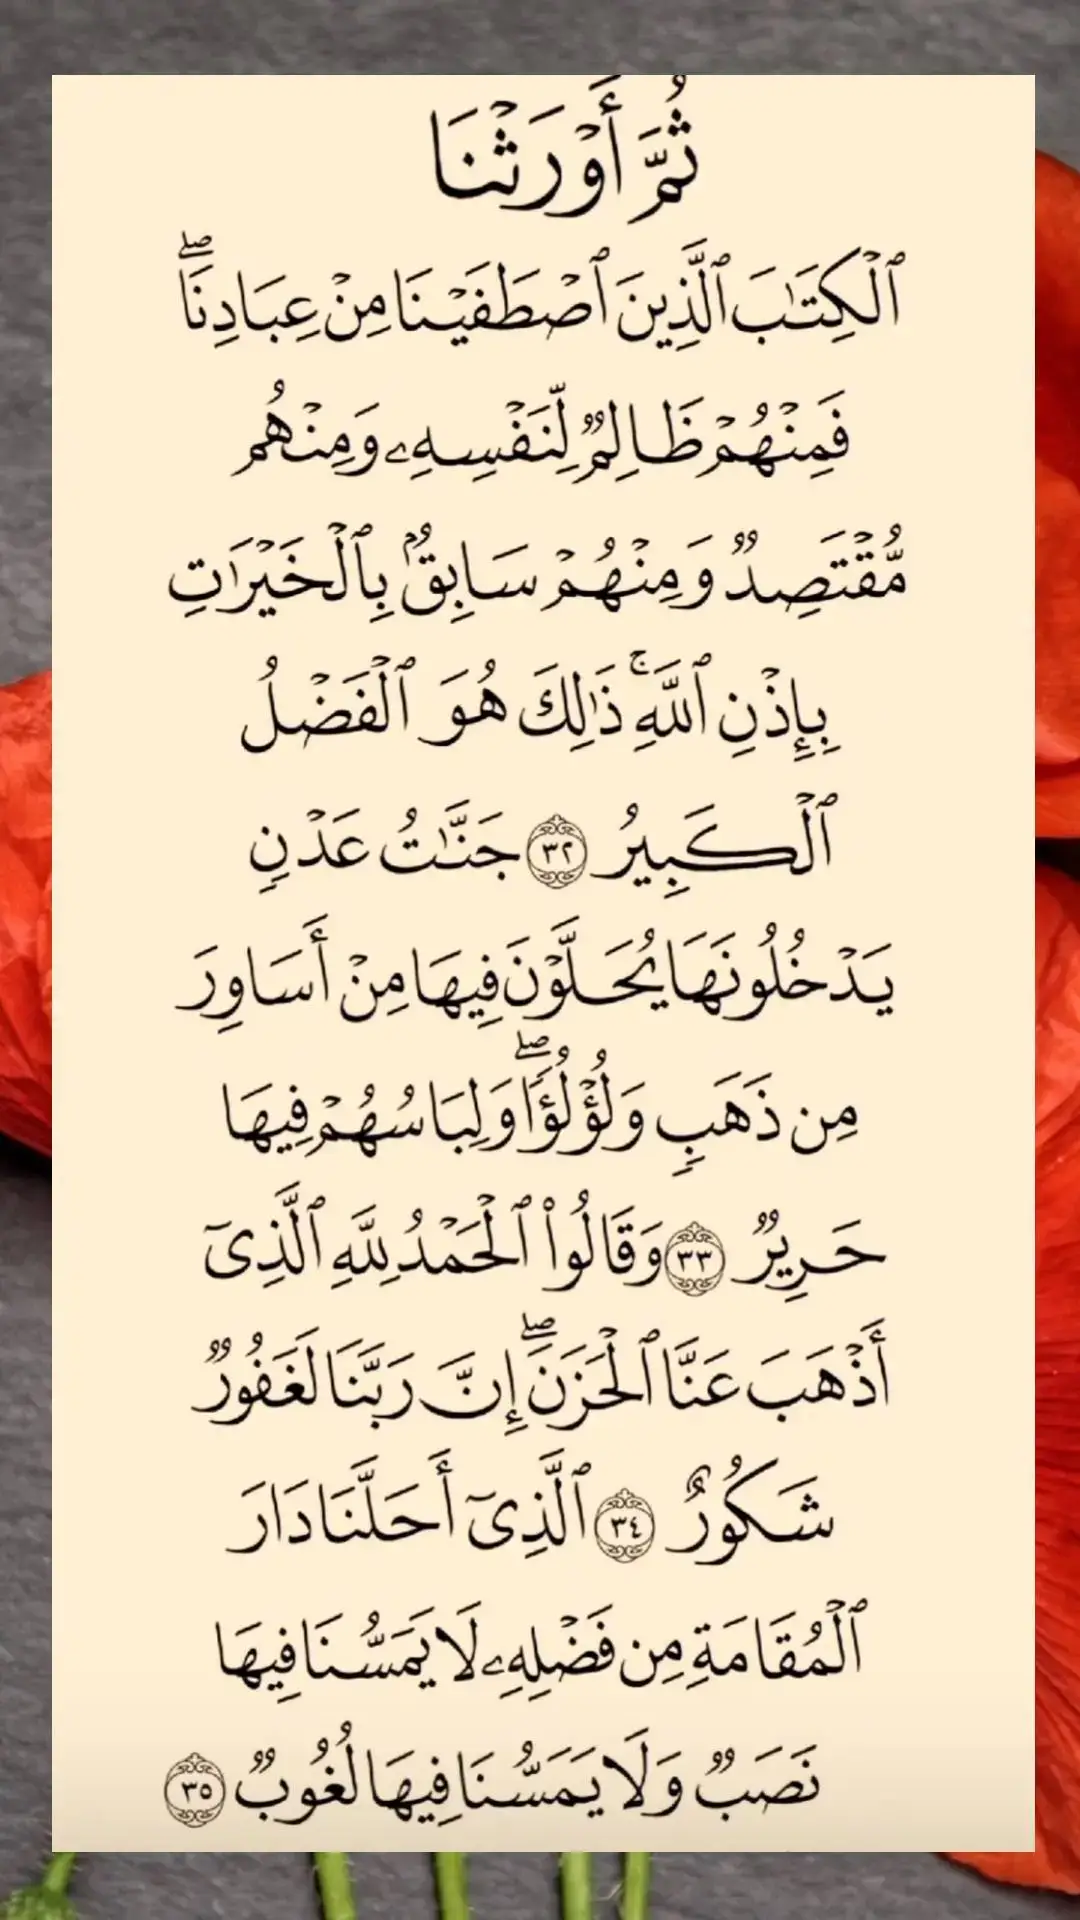 ثُمَّ أَوۡرَثۡنَا
ٱلۡكِتَٰبَ ٱلَّذِينَ ٱصۡطَفَيۡنَا مِنۡ عِبَادِنَاۖ
فَمِنۡهُمۡ ظَالِمٞ لِّنَفۡسِهِۦ وَمِنۡهُم
مُّقۡتَصِدٞ وَمِنۡهُمۡ سَابِقُۢ بِٱلۡخَيۡرَٰتِ
بِإِذۡنِ ٱللَّهِۚ ذَٰلِكَ هُوَ ٱلۡفَضۡلُ
ٱلۡكَبِيرُ ٣٢ جَنَّٰتُ عَدۡنٖ
يَدۡخُلُونَهَا يُحَلَّوۡنَ فِيهَا مِنۡ أَسَاوِرَ
مِن ذَهَبٖ وَلُؤۡلُؤٗاۖ وَلِبَاسُهُمۡ فِيهَا
حَرِيرٞ ٣٣ وَقَالُواْ ٱلۡحَمۡدُ لِلَّهِ ٱلَّذِيٓ
أَذۡهَبَ عَنَّا ٱلۡحَزَنَۖ إِنَّ رَبَّنَا لَغَفُورٞ
شَكُورٌ ٣٤ ٱلَّذِيٓ أَحَلَّنَا دَارَ
ٱلۡمُقَامَةِ مِن فَضۡلِهِۦ لَا يَمَسُّنَا فِيهَا
نَصَبٞ وَلَا يَمَسُّنَا فِيهَا لُغُوبٞ ٣٥